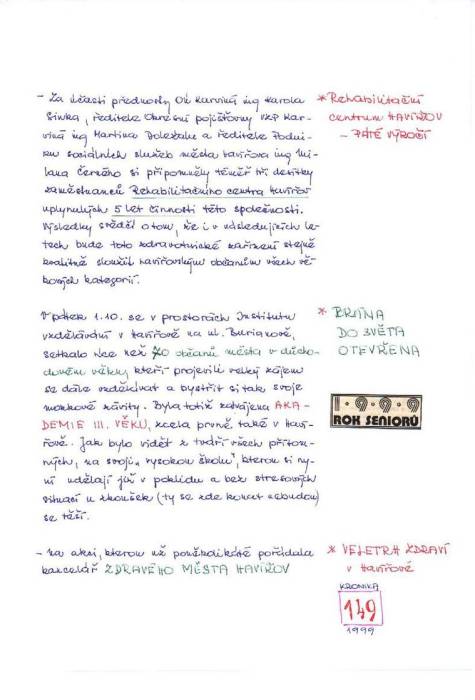 - Za účasti přednosty OÚ Karviná ing Karola
Siwka, ředitele Okresní pojišťovny VZP Kar-
viná ing Martina Doležala a ředitele Podni-
ku sociálních služeb města Havířova ing Mi-
lana Černého si připomněly téměř tři desítky
zaměstnanců Rehabilitačního centra Havířov
uplynulých 5 let činnosti této společnosti.
Výsledky svědčí o tom, že i v následujících le-
tech bude toto zdravotnické zařízení stejně
kvalitně sloužit havířovským občanům všech vě-
kových kategorií.
* Rehabilitační
centrum HAVÍŘOV
- PÁTÉ VÝROČÍ
V pátek 1.10. se v prostorách Institutu
vzdělávání v Havířově na ul. Burianově,
setkalo více než 70 občanů města v důcho-
dovém věku, kteří projevili velký zájem
se dále vzdělávat a bystřit si tak svoje
mozkové závity. Byla totiž zahájena AKA-
DEMIE III. VĚKU, zcela prvně také v Haví-
řově. Jak bylo vidět z tváří všech přítom-
ných, na svoji „vysokou školu", kterou si ny-
ní udělají již v poklidu a bez stresových
situací u zkoušek (ty se zde konat nebudou)
se těší.
* BRÁNA
DO SVĚTA
OTEVŘENA
1999
ROK SENIORŮ
- Na akci, kterou už poněkolikáté pořádala
kancelář ZDRAVÉHO MĚSTA HAVÍŘOV
* VELETRH ZDRAVÍ
v Havířově
KRONIKA
149
1999